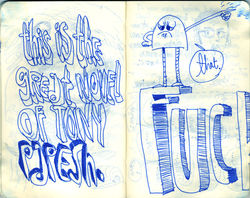 this is the
great NOVEl
OF TONY
PAPESh.
that.